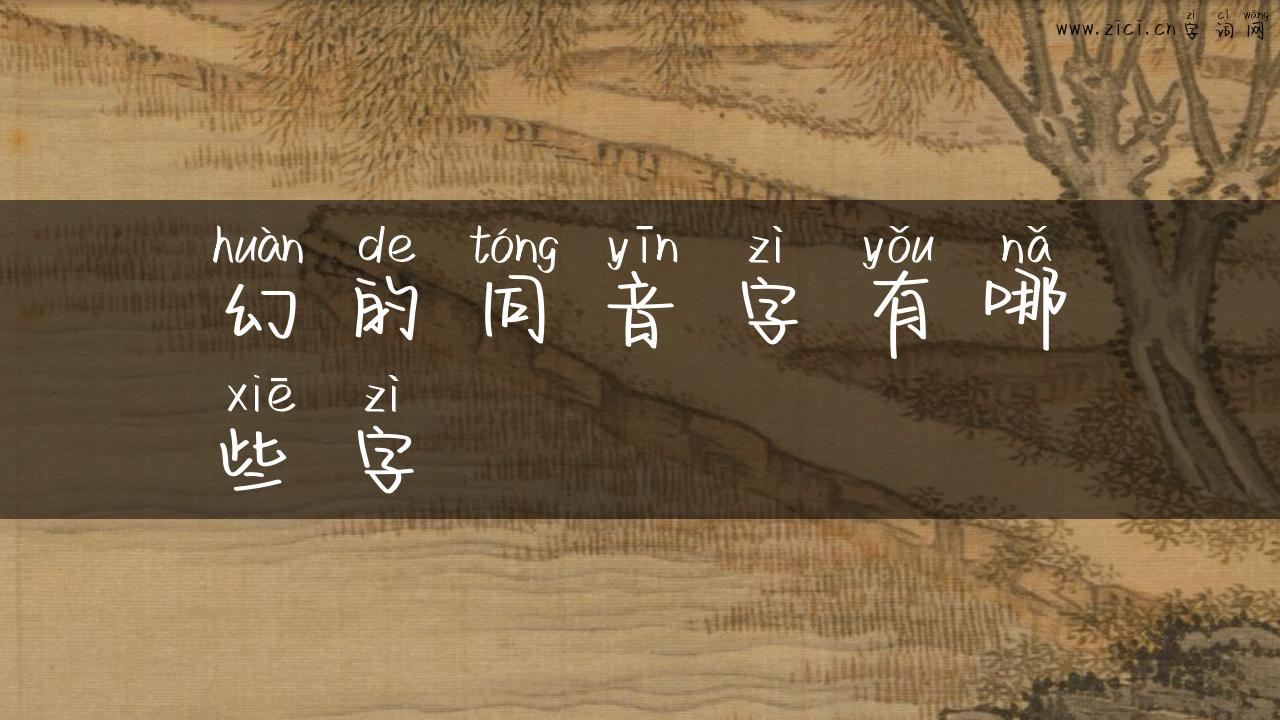 zì cí wǎng
www.zici.cn字词网
huàn de tóng yīn zì yǒu nǎ
幻的同音字有哪
xiē zì
些字